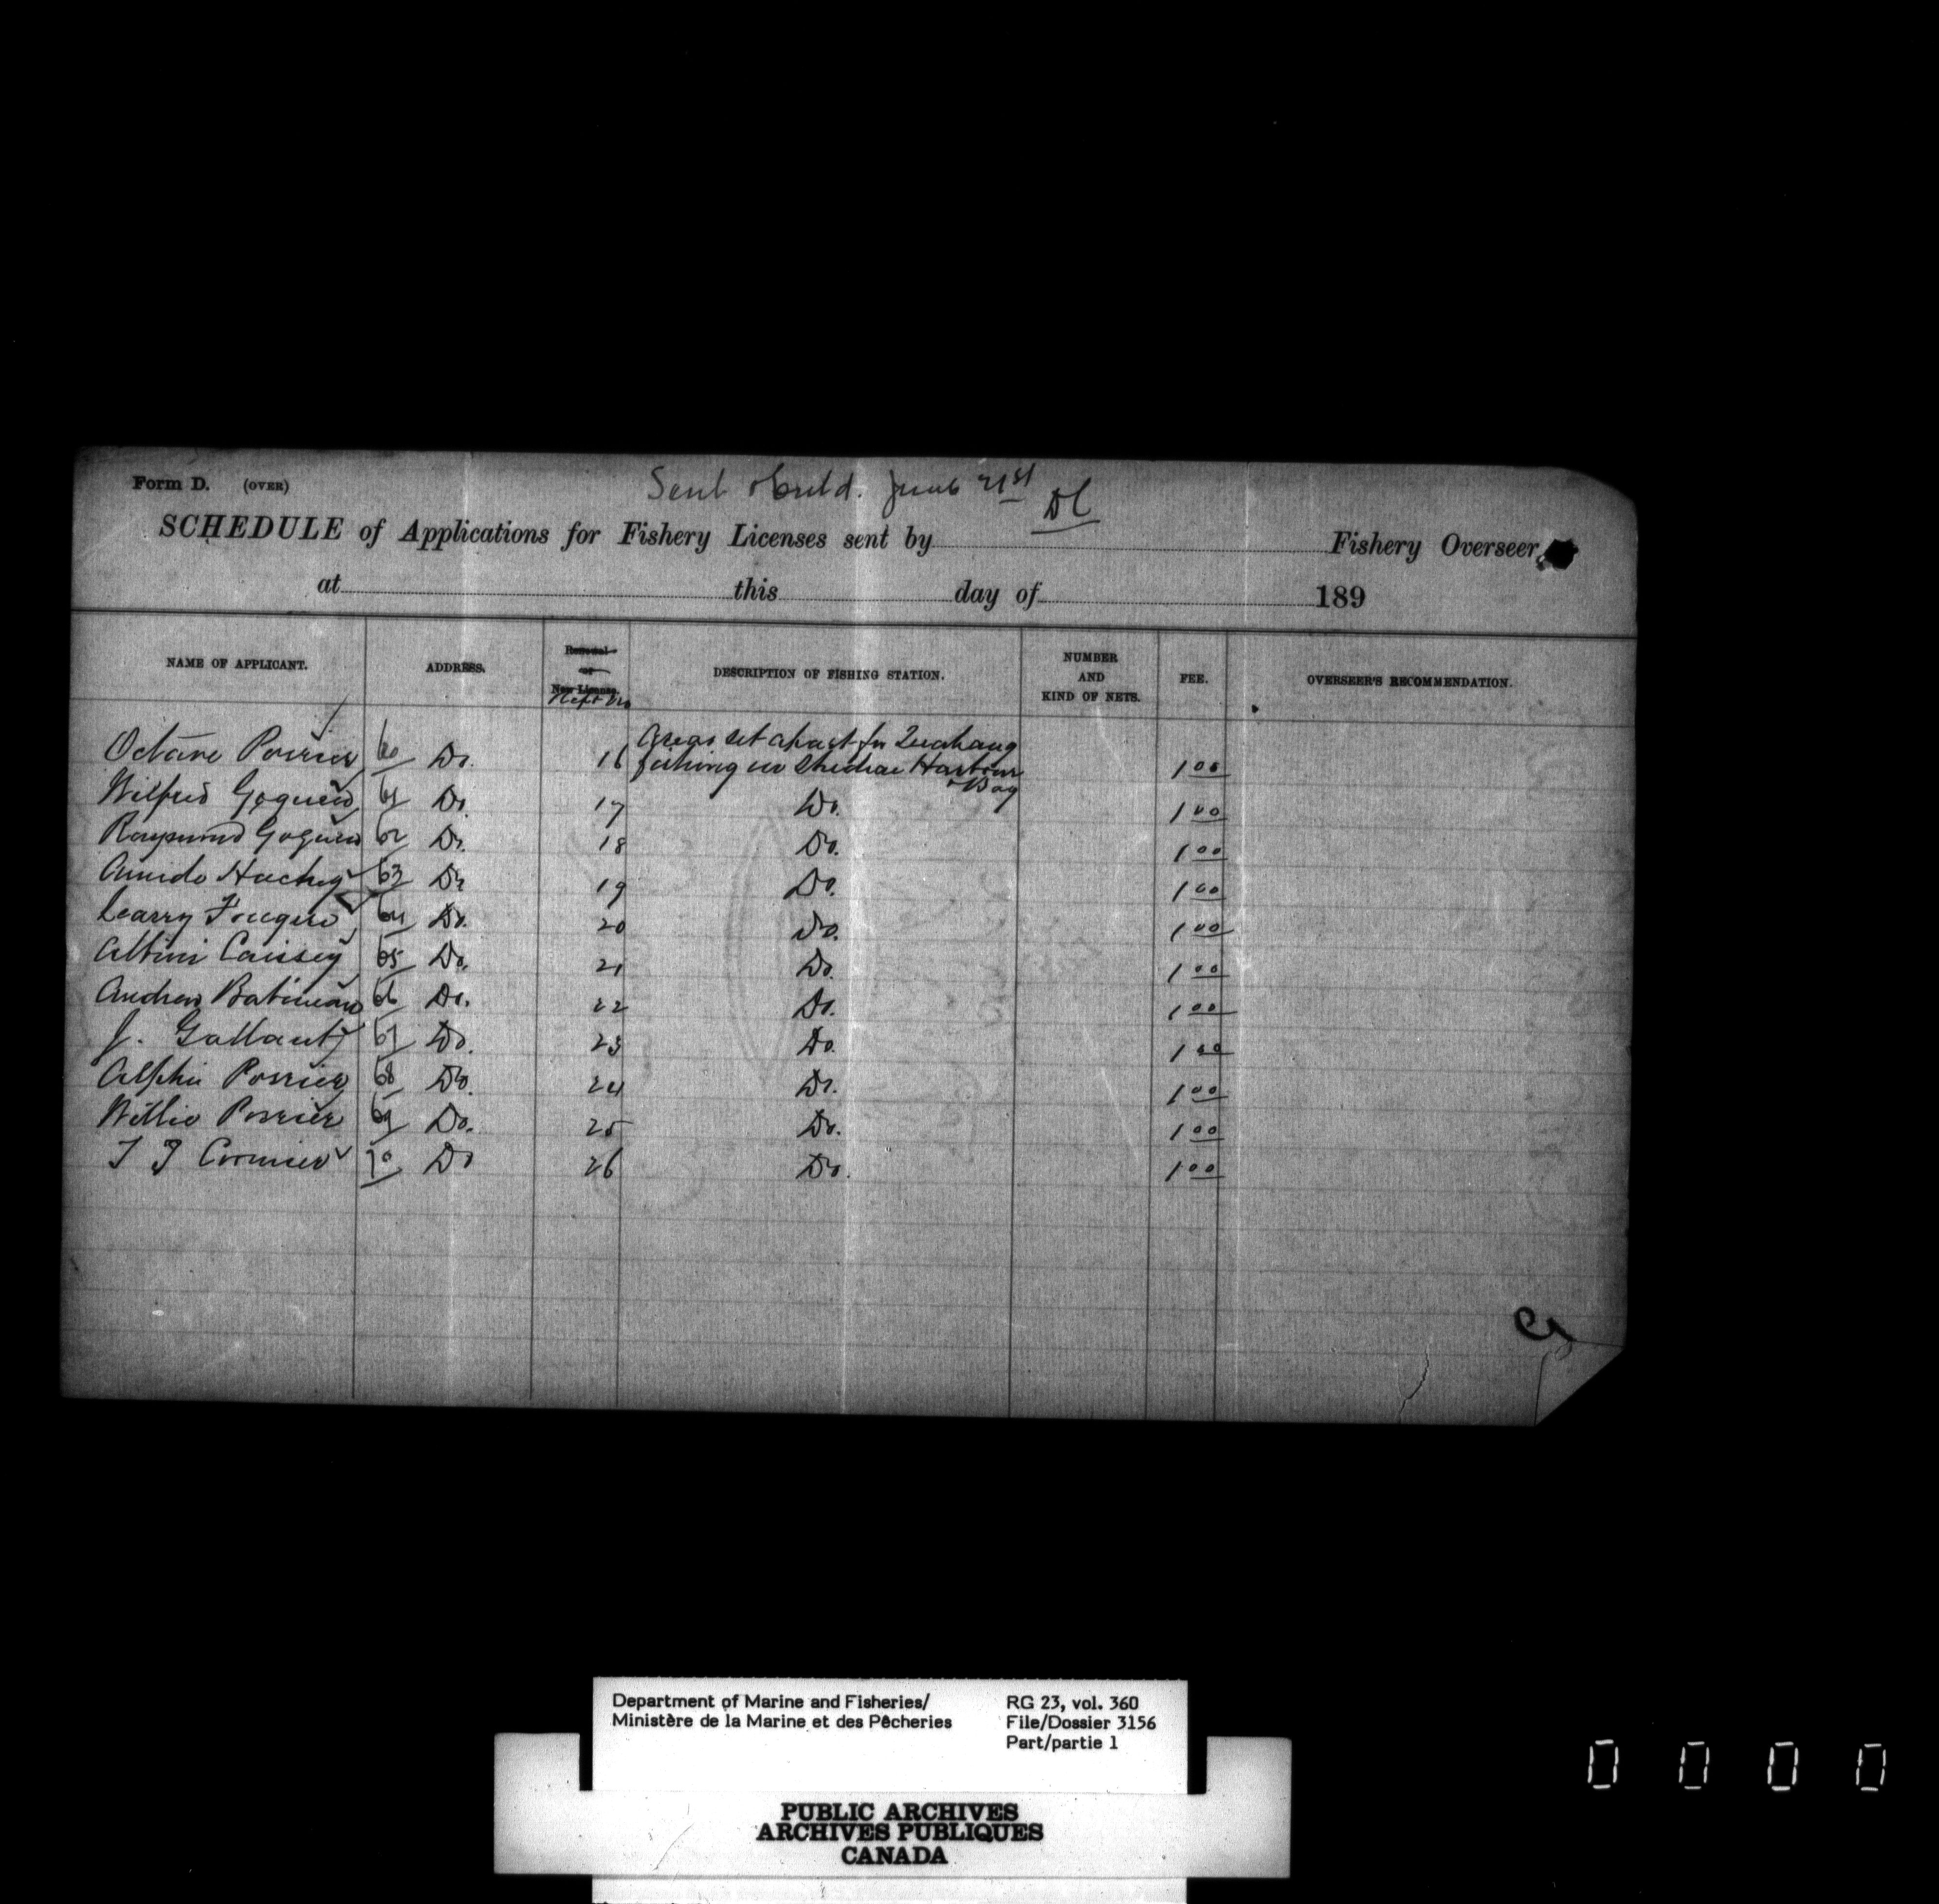 Form D. (OVER)
Sent & Entd. June 21st DC
SCHEDULE of Applications for Fishery Licenses sent by Fishery Overseer,
at this day of 189
NAME OF APPLICANT. ADDRESS. Renewal or New License. DESCRIPTION OF FISHING STATION. NUMBER AND KIND OF NETS. FEE. OVERSEER'S RECOMMENDATION.
Areas set apart for Quahaug
Octave Poirier 60 Do. 16 fishing in Shediac Harbour 1 00
& Bay
Wilfred Goguen 61 Do. 17 Do. 1 00
Raymond Goguen 62 Do. 18 Do. 1 00
Amido Hachey 63 Do. 19 Do. 1 00
64 Do. 20 Do. 1 00
Albini Caissey 65 Do. 21 Do. 1 00
Andrew Bateman 66 Do. 22 Do. 1 00
J. Gallant 67 Do. 23 Do. 1 00
Alphie Poirier 68 Do. 24 Do. 1 00
Willie Poirier 69 Do. 25 Do. 1 00
Cormier 70 Do 26 Do. 1 00
Department of Marine and Fisheries/ RG 23, vol. 360
Ministère de la Marine et des Pêcheries File/Dossier 3156
Part/partie 1
PUBLIC ARCHIVES
ARCHIVES PUBLIQUES
CANADA
0 0 0 0